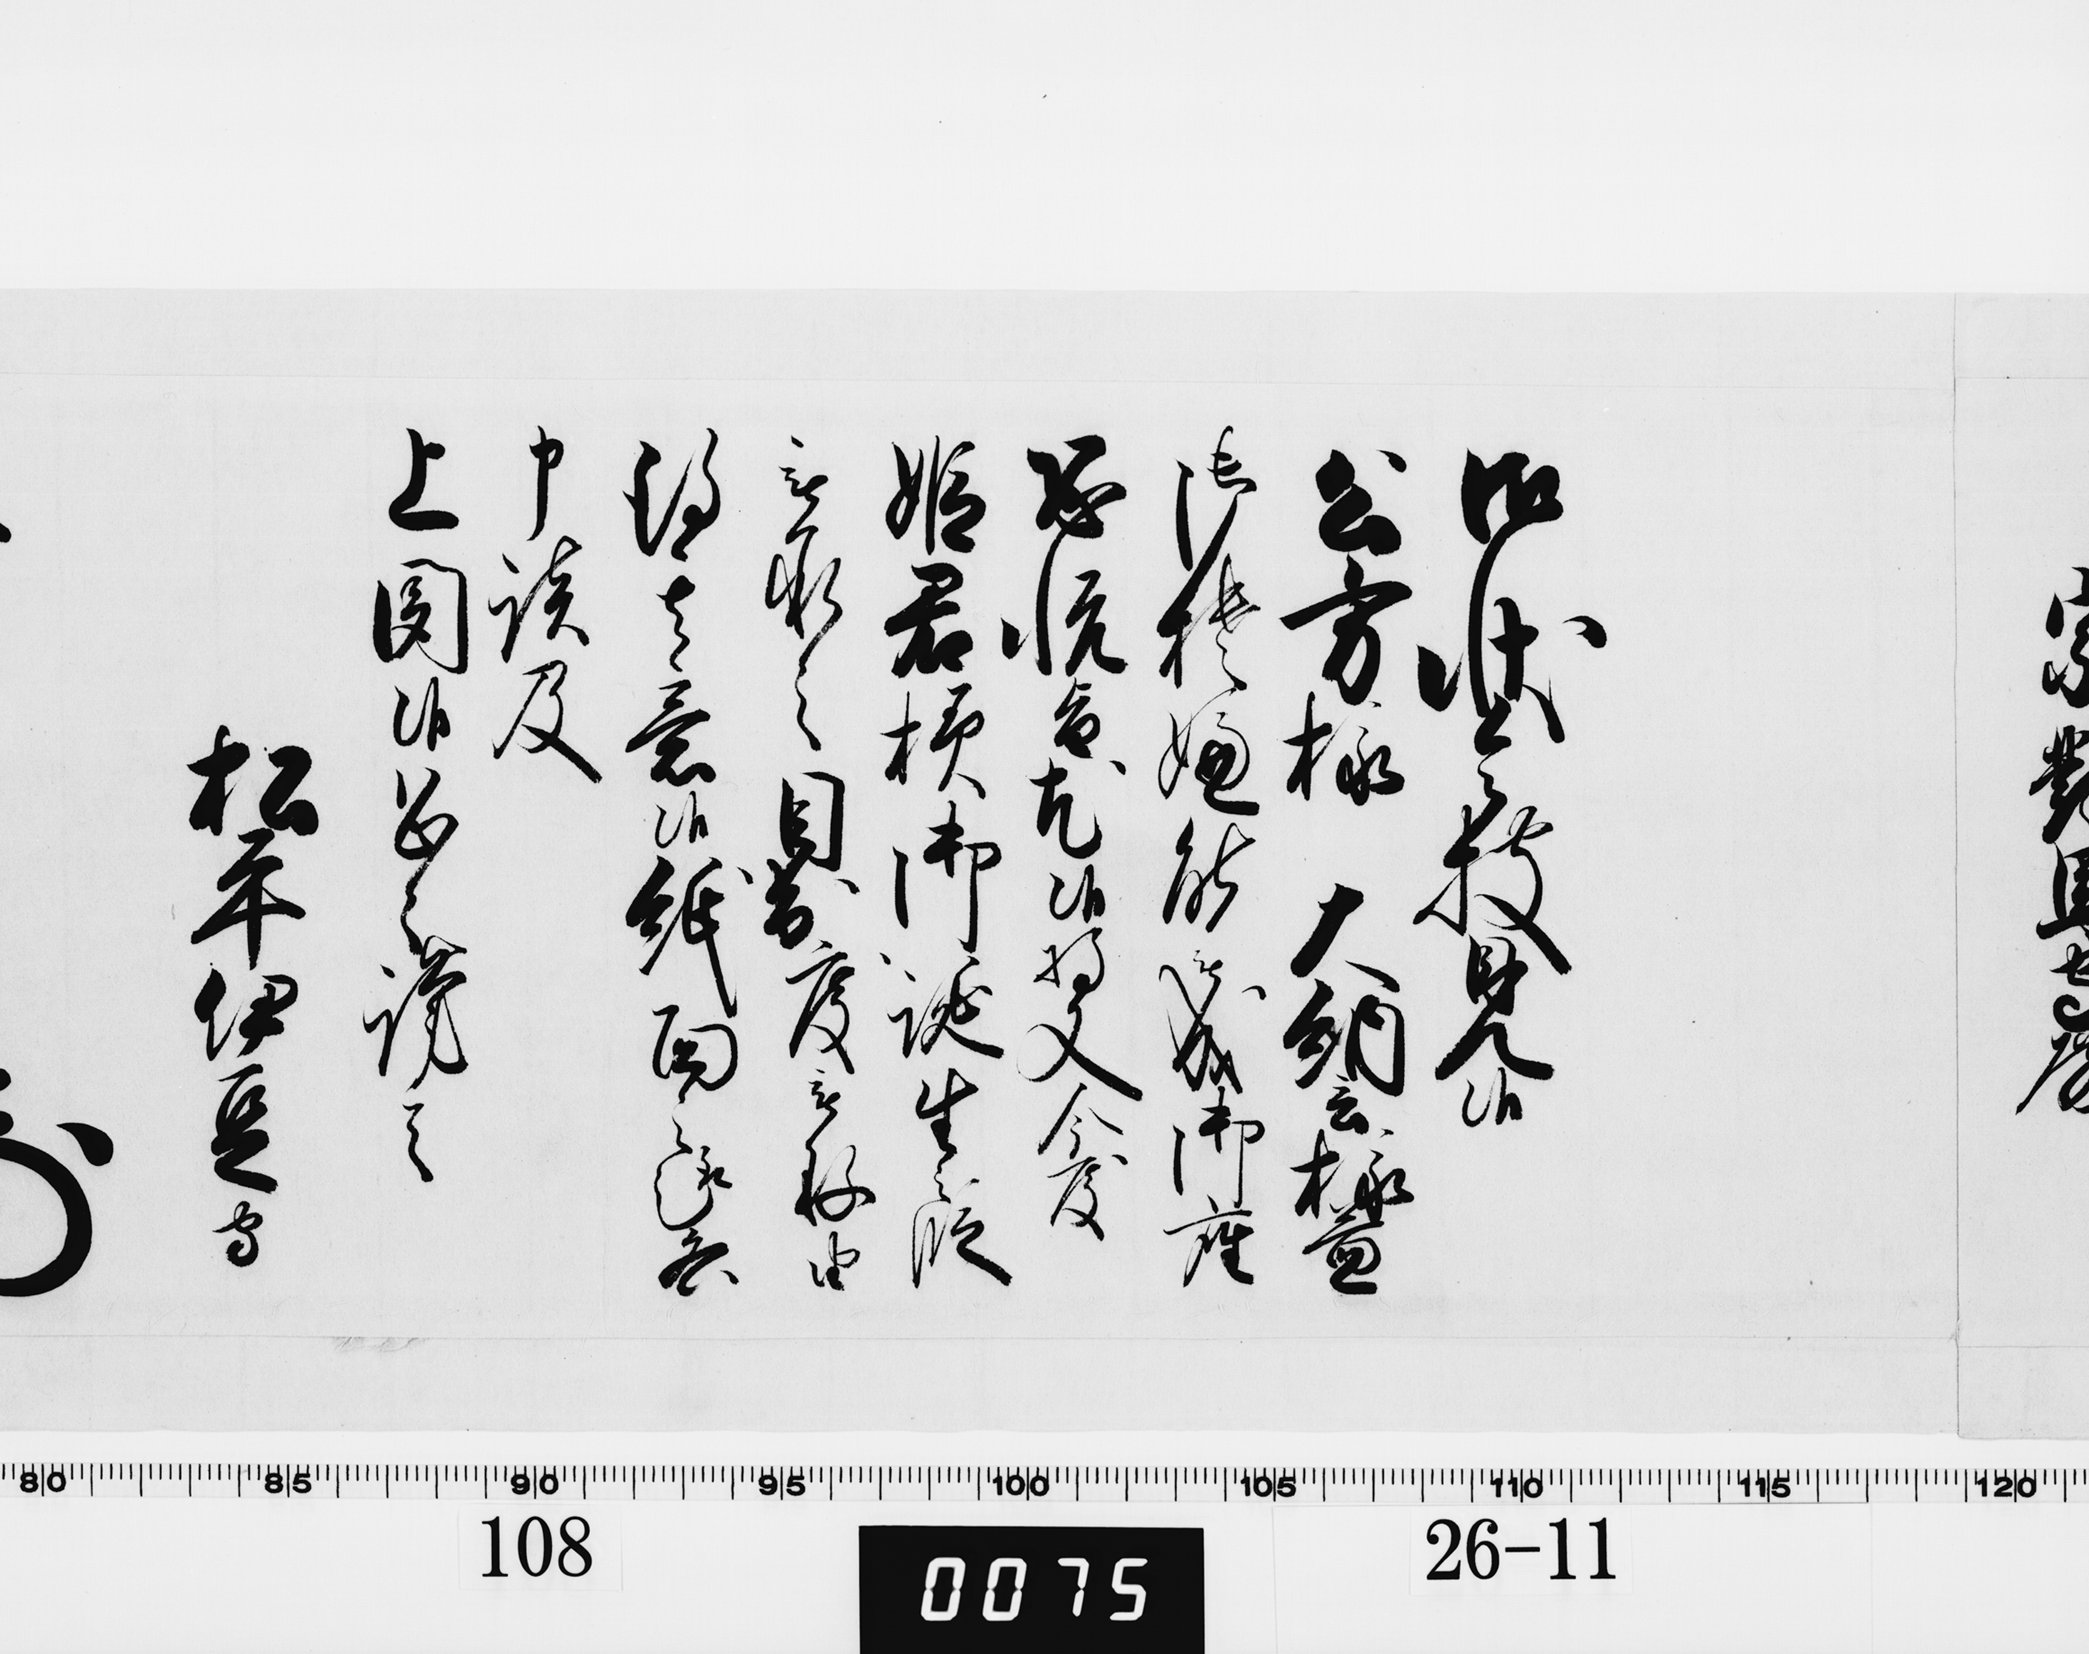 宗對馬守殿
御状令披見候
公方様 大納言様益
御機嫌能被成御座
恐悦旨尤候将又今度
姫君様御誕生之段
被承之目出度被存由
得其意候紙面之趣各
申談及
上聞候恐々謹言
松平伊豆守
80 85 90 95 100 105 110 115 120
108
0075
26-11